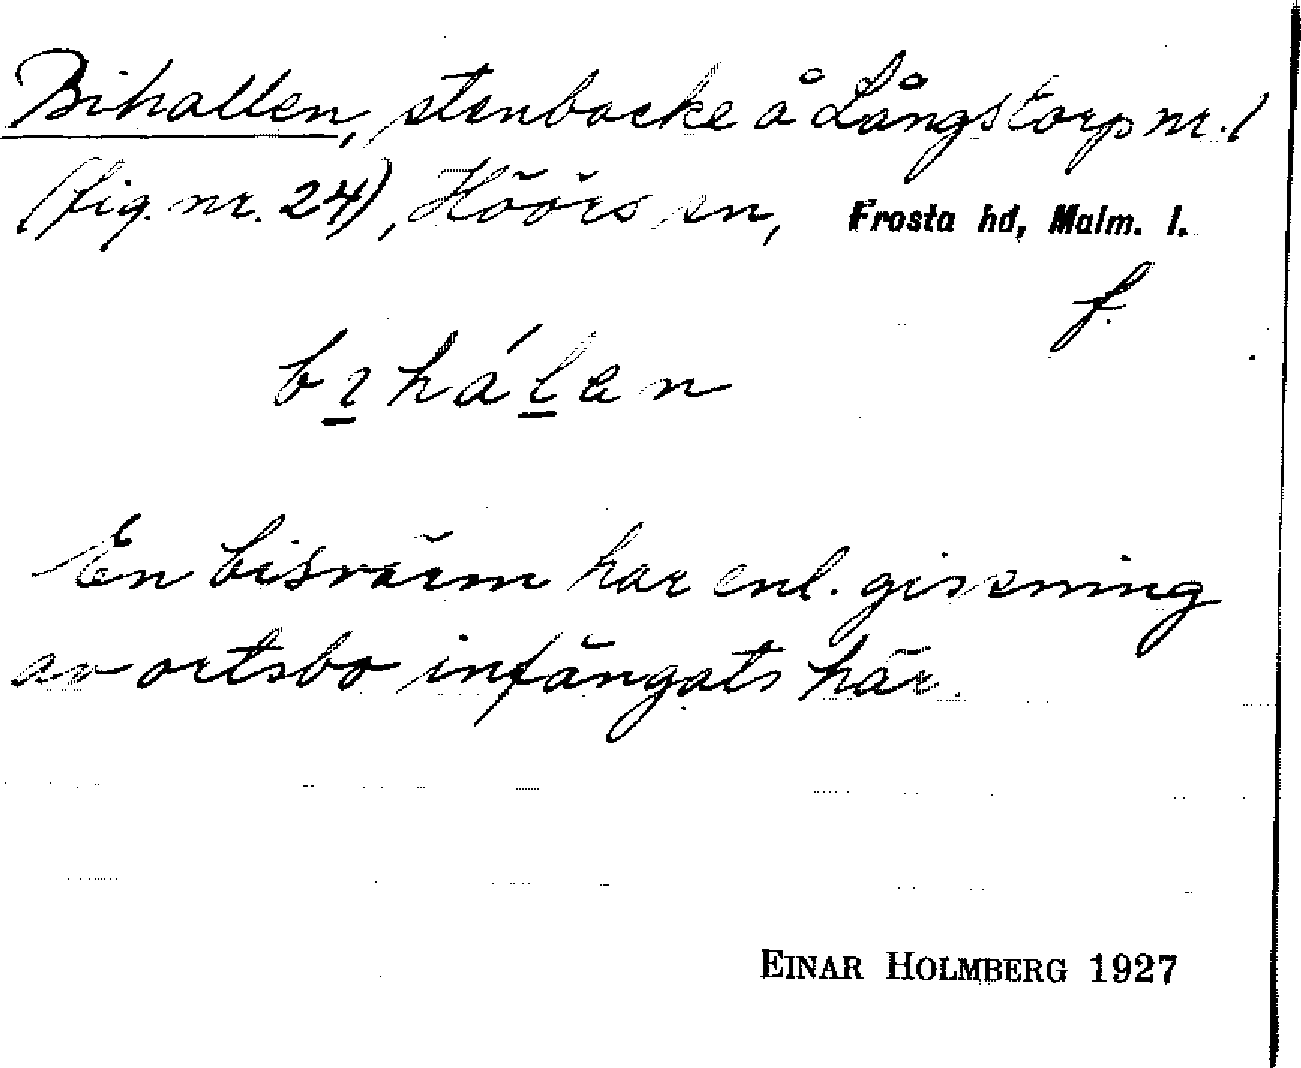 Bihallen, stenbacke å Långstorp nr. 1
(fig. nr. 24), Höörs sn, Frosta hd, Malm. l.
f.
bıhálen
En bisvärm har enl. gissning
av ortsbo infångats här.
EINAR HOLMBERG 1927